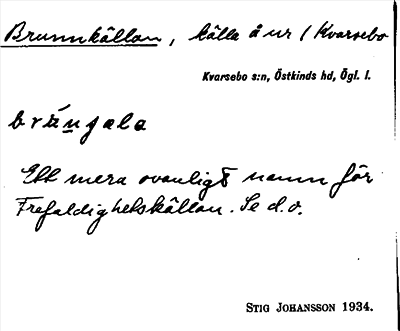 Brunnkällan, källa å nr 1 Kvarsebo
Kvarsebo s:n, Östkinds hd, Ögl. l.
Ett mera ovanligt namn för
Trefaldighetskällan. Se d.o.
Stig Johansson 1934.